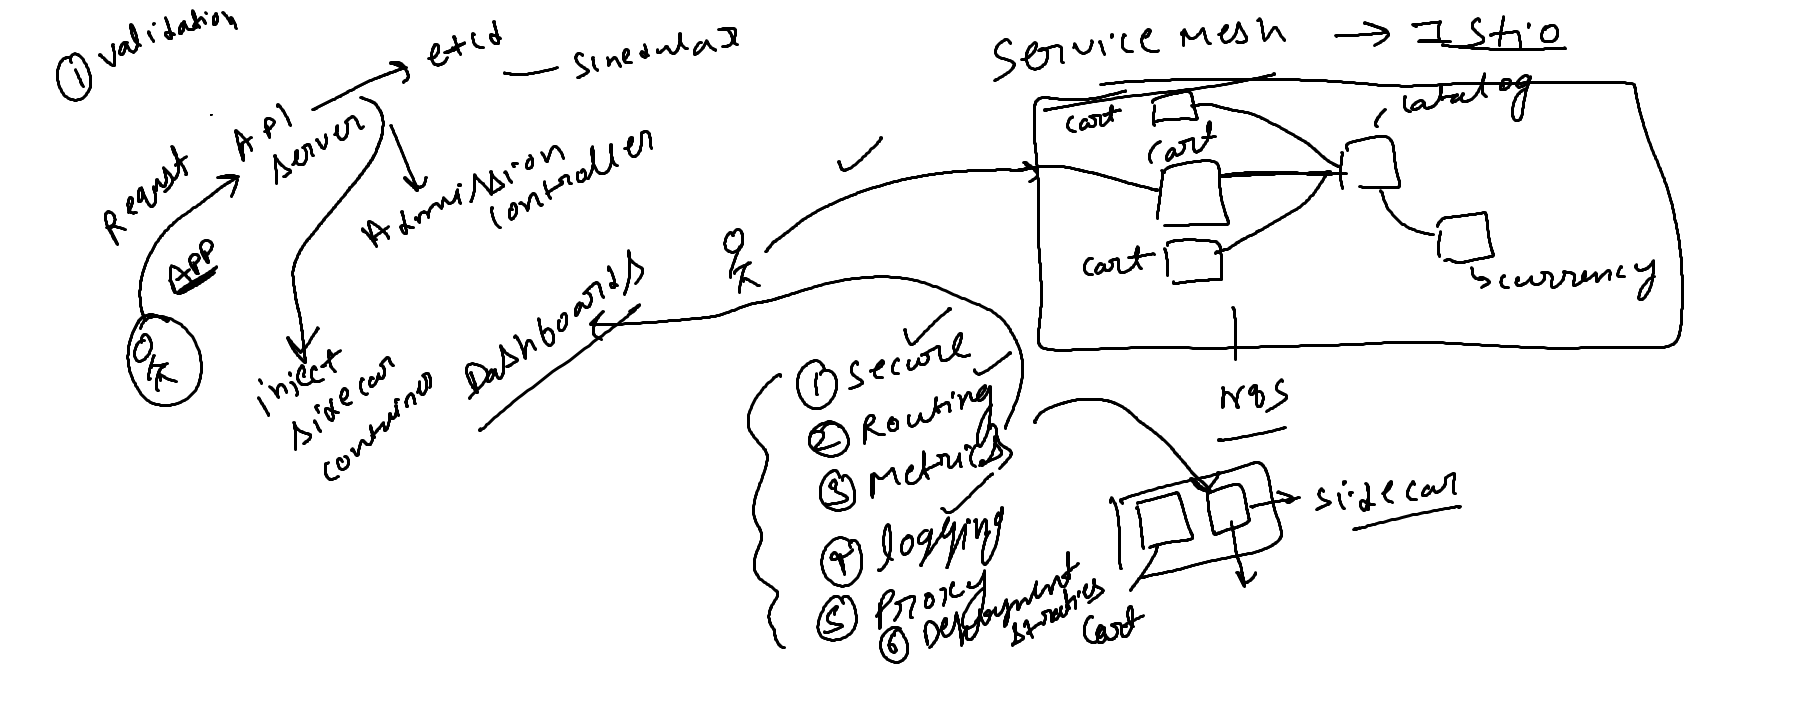 ① validation
etcd
Request
API
server
Admission
controller
APP
inject
sidecar
container
Dashboards
Service mesh → Istio
cart
cart
cart
catalog
currency
K8S
① secure
② Routing
③ Metrics
④ logging
⑤ Proxy
⑥ Deployment
cart
sidecar